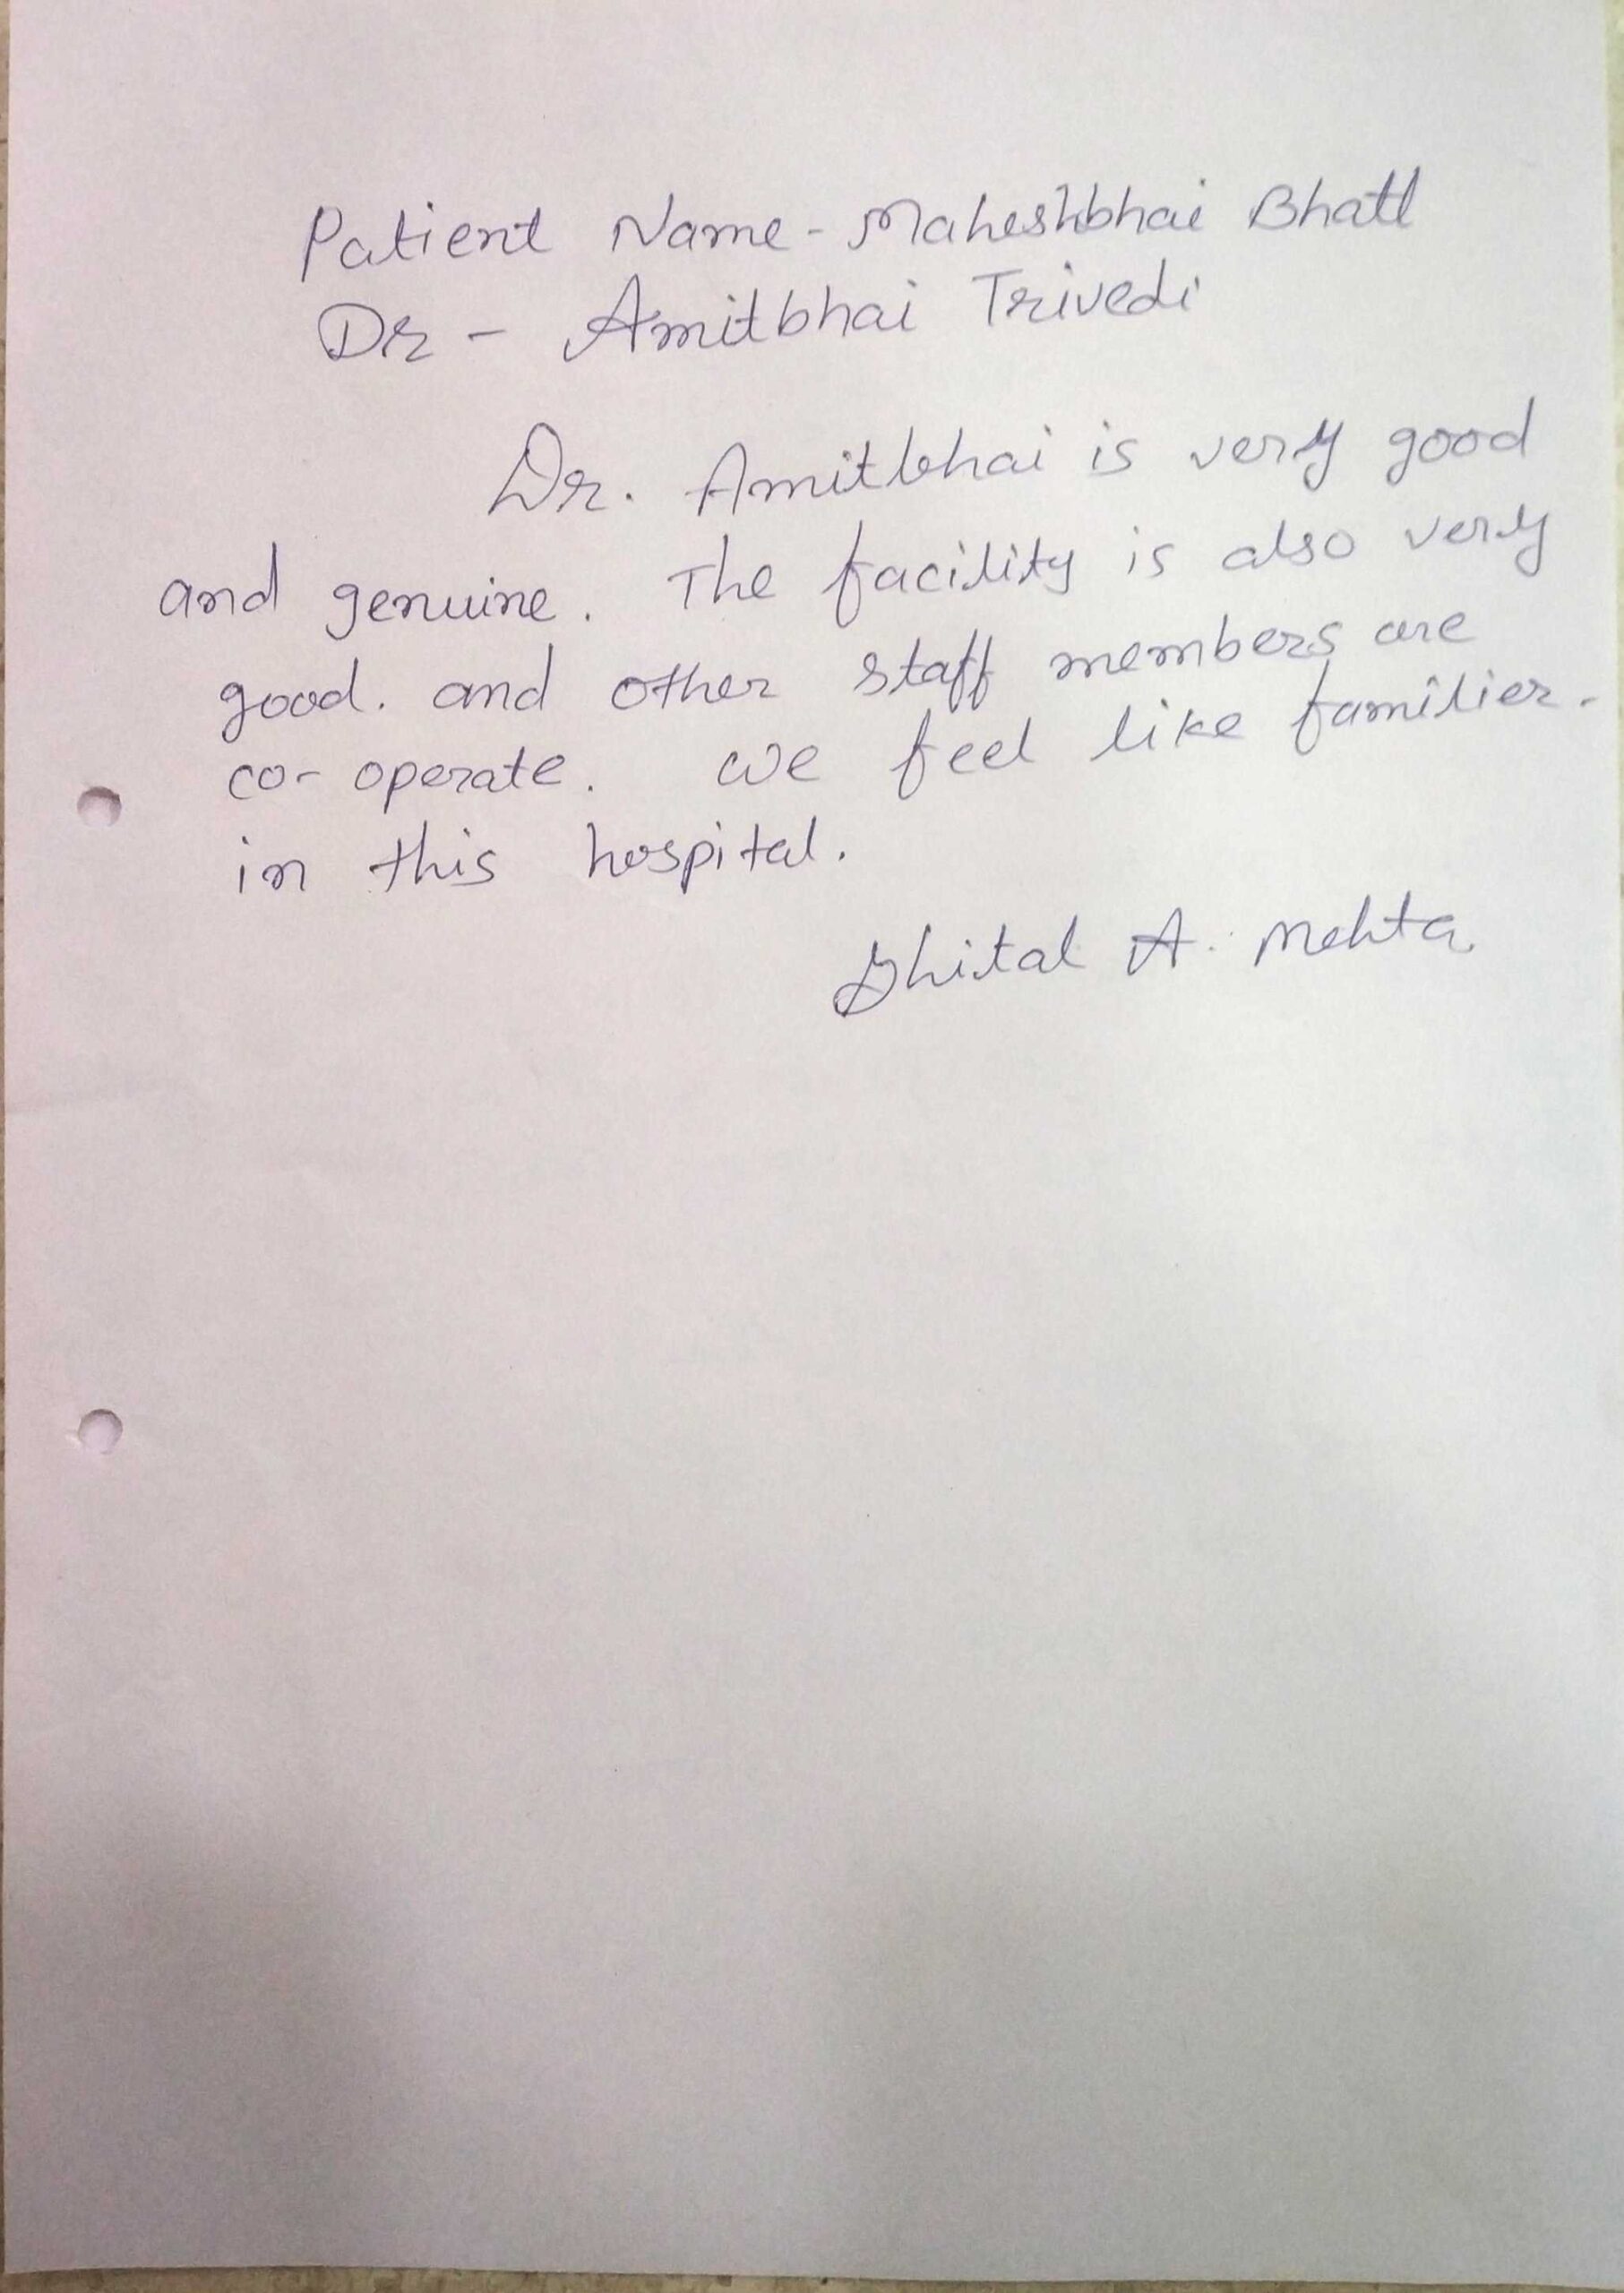 Patient Name - Maheshbhai Bhatt
Dr - Amitbhai Trivedi
Dr. Amitbhai is very good
and genuine. The facility is also very
good. and other staff members are
co-operate. we feel like familier.
in this hospital.
Shital A. Mehta